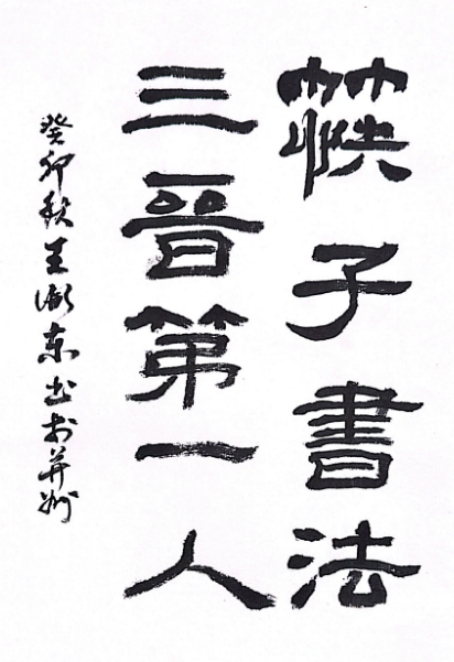 筷子書法
三晉第一人
癸卯秋王东书於并州